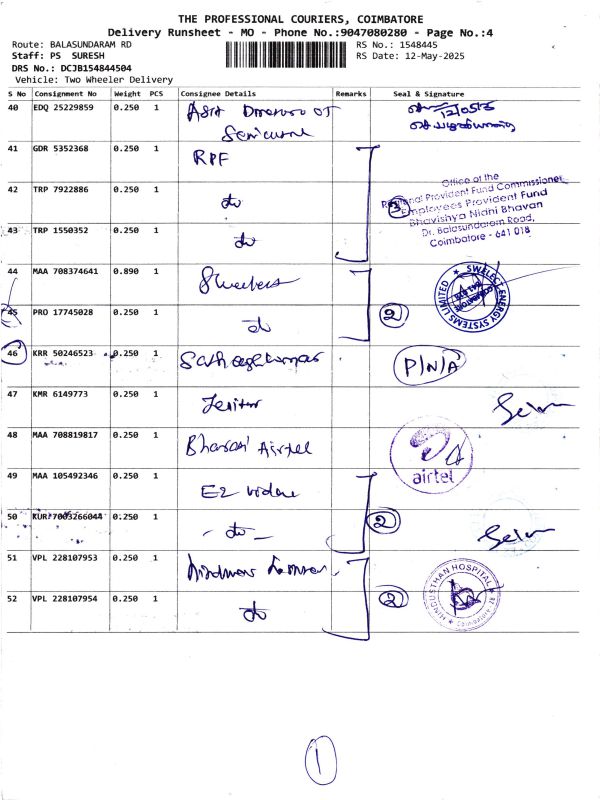 THE PROFESSIONAL COURIERS, COIMBATORE
Delivery Runsheet - MO - Phone No.:9047080280 - Page No.:4
Route: BALASUNDARAM RD
RS No.: 1548445
Staff: PS SURESH
RS Date: 12-May-2025
DRS No.: DCJB154844504
Vehicle: Two Wheeler Delivery
S No Consignment No Weight PCS Consignee Details Remarks Seal & Signature
40 EDQ 25229859 0.250 1
12/05/25
41 GDR 5352368 0.250 1 RPF
42 TRP 7922886 0.250 1 do
43 TRP 1550352 0.250 1 do
3
Office of the
Regional Provident Fund Commissioner
Employees Provident Fund
Bhavishya Nidhi Bhavan
Dr. Balasundaram Road,
Coimbatore - 641 018
44 MAA 708374641 0.890 1
45 PRO 17745028 0.250 1 do
2
SWELECT ENERGY SYSTEMS LIMITED
COIMBATORE
46 KRR 50246523 0.250 1 P/N/A
47 KMR 6149773 0.250 1
48 MAA 708819817 0.250 1 Bharati Airtel
airtel
49 MAA 105492346 0.250 1
50 KUR 7003266044 0.250 1 - do -
2
51 VPL 228107953 0.250 1
52 VPL 228107954 0.250 1 do
2
HINDUSTHAN HOSPITAL
Coimbatore
1